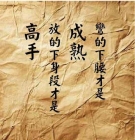 彎的下腰才是
成熟
放的下身段才是
高手